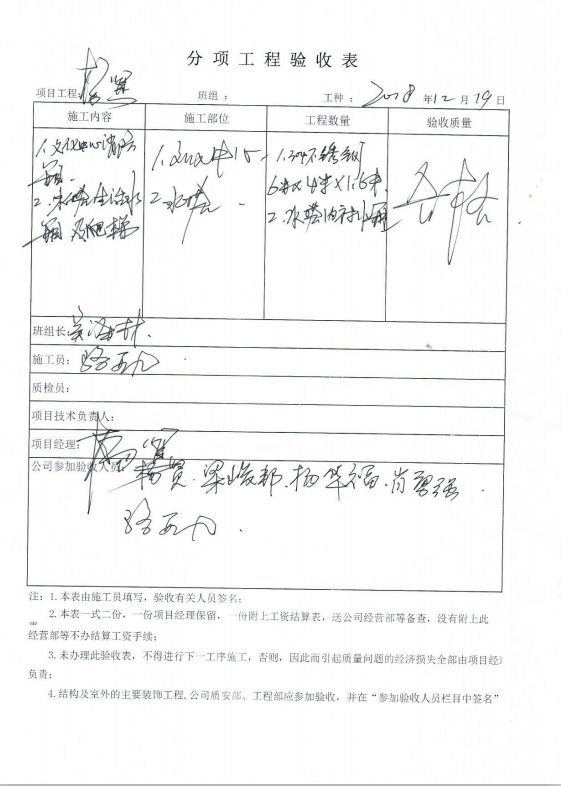 分项工程验收表
项目工程: 班组： 工种： 2018年12月19日
施工内容 施工部位 工程数量 验收质量
1. 消防 1. 1.304不锈钢
6米×4米×1.6米 合格
2. 水塔生活水 2.水塔 2.水塔内衬
箱及爬梯
班组长:
施工员: 路
质检员:
项目技术负责人:
项目经理: 杨
公司参加验收人员: 杨 梁 邦.杨华 .肖勇强.
路
注: 1.本表由施工员填写, 验收有关人员签名;
2.本表一式二份, 一份项目经理保留, 一份附上工资结算表, 送公司经营部等备查, 没有附上此
经营部等不办结算工资手续;
3.未办理此验收表, 不得进行下一工序施工, 否则, 因此而引起质量问题的经济损失全部由项目经
负责;
4.结构及室外的主要装饰工程,公司质安部、工程部应参加验收, 并在“参加验收人员栏目中签名”